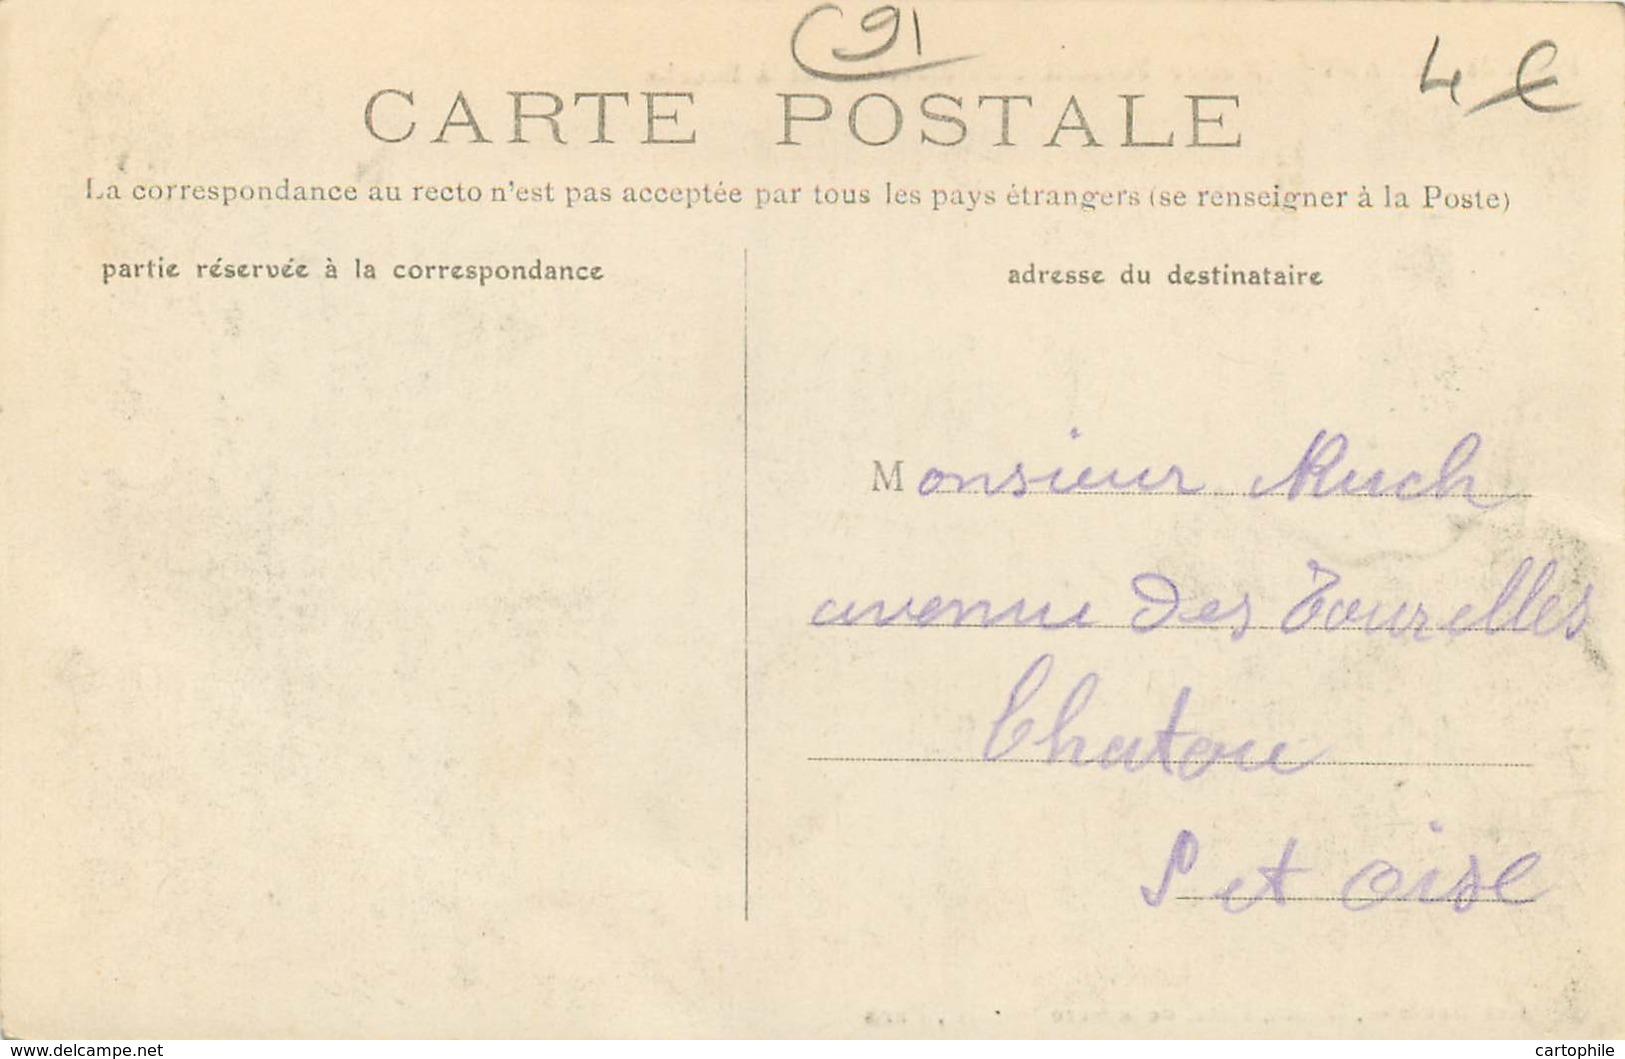 91
4 €
CARTE POSTALE
La correspondance au recto n'est pas acceptée par tous les pays étrangers (se renseigner à la Poste)
partie réservée à la correspondance
adresse du destinataire
Monsieur Ruch
avenue des Tourelles
Chatou
S et oise
www.delcampe.net
cartophile